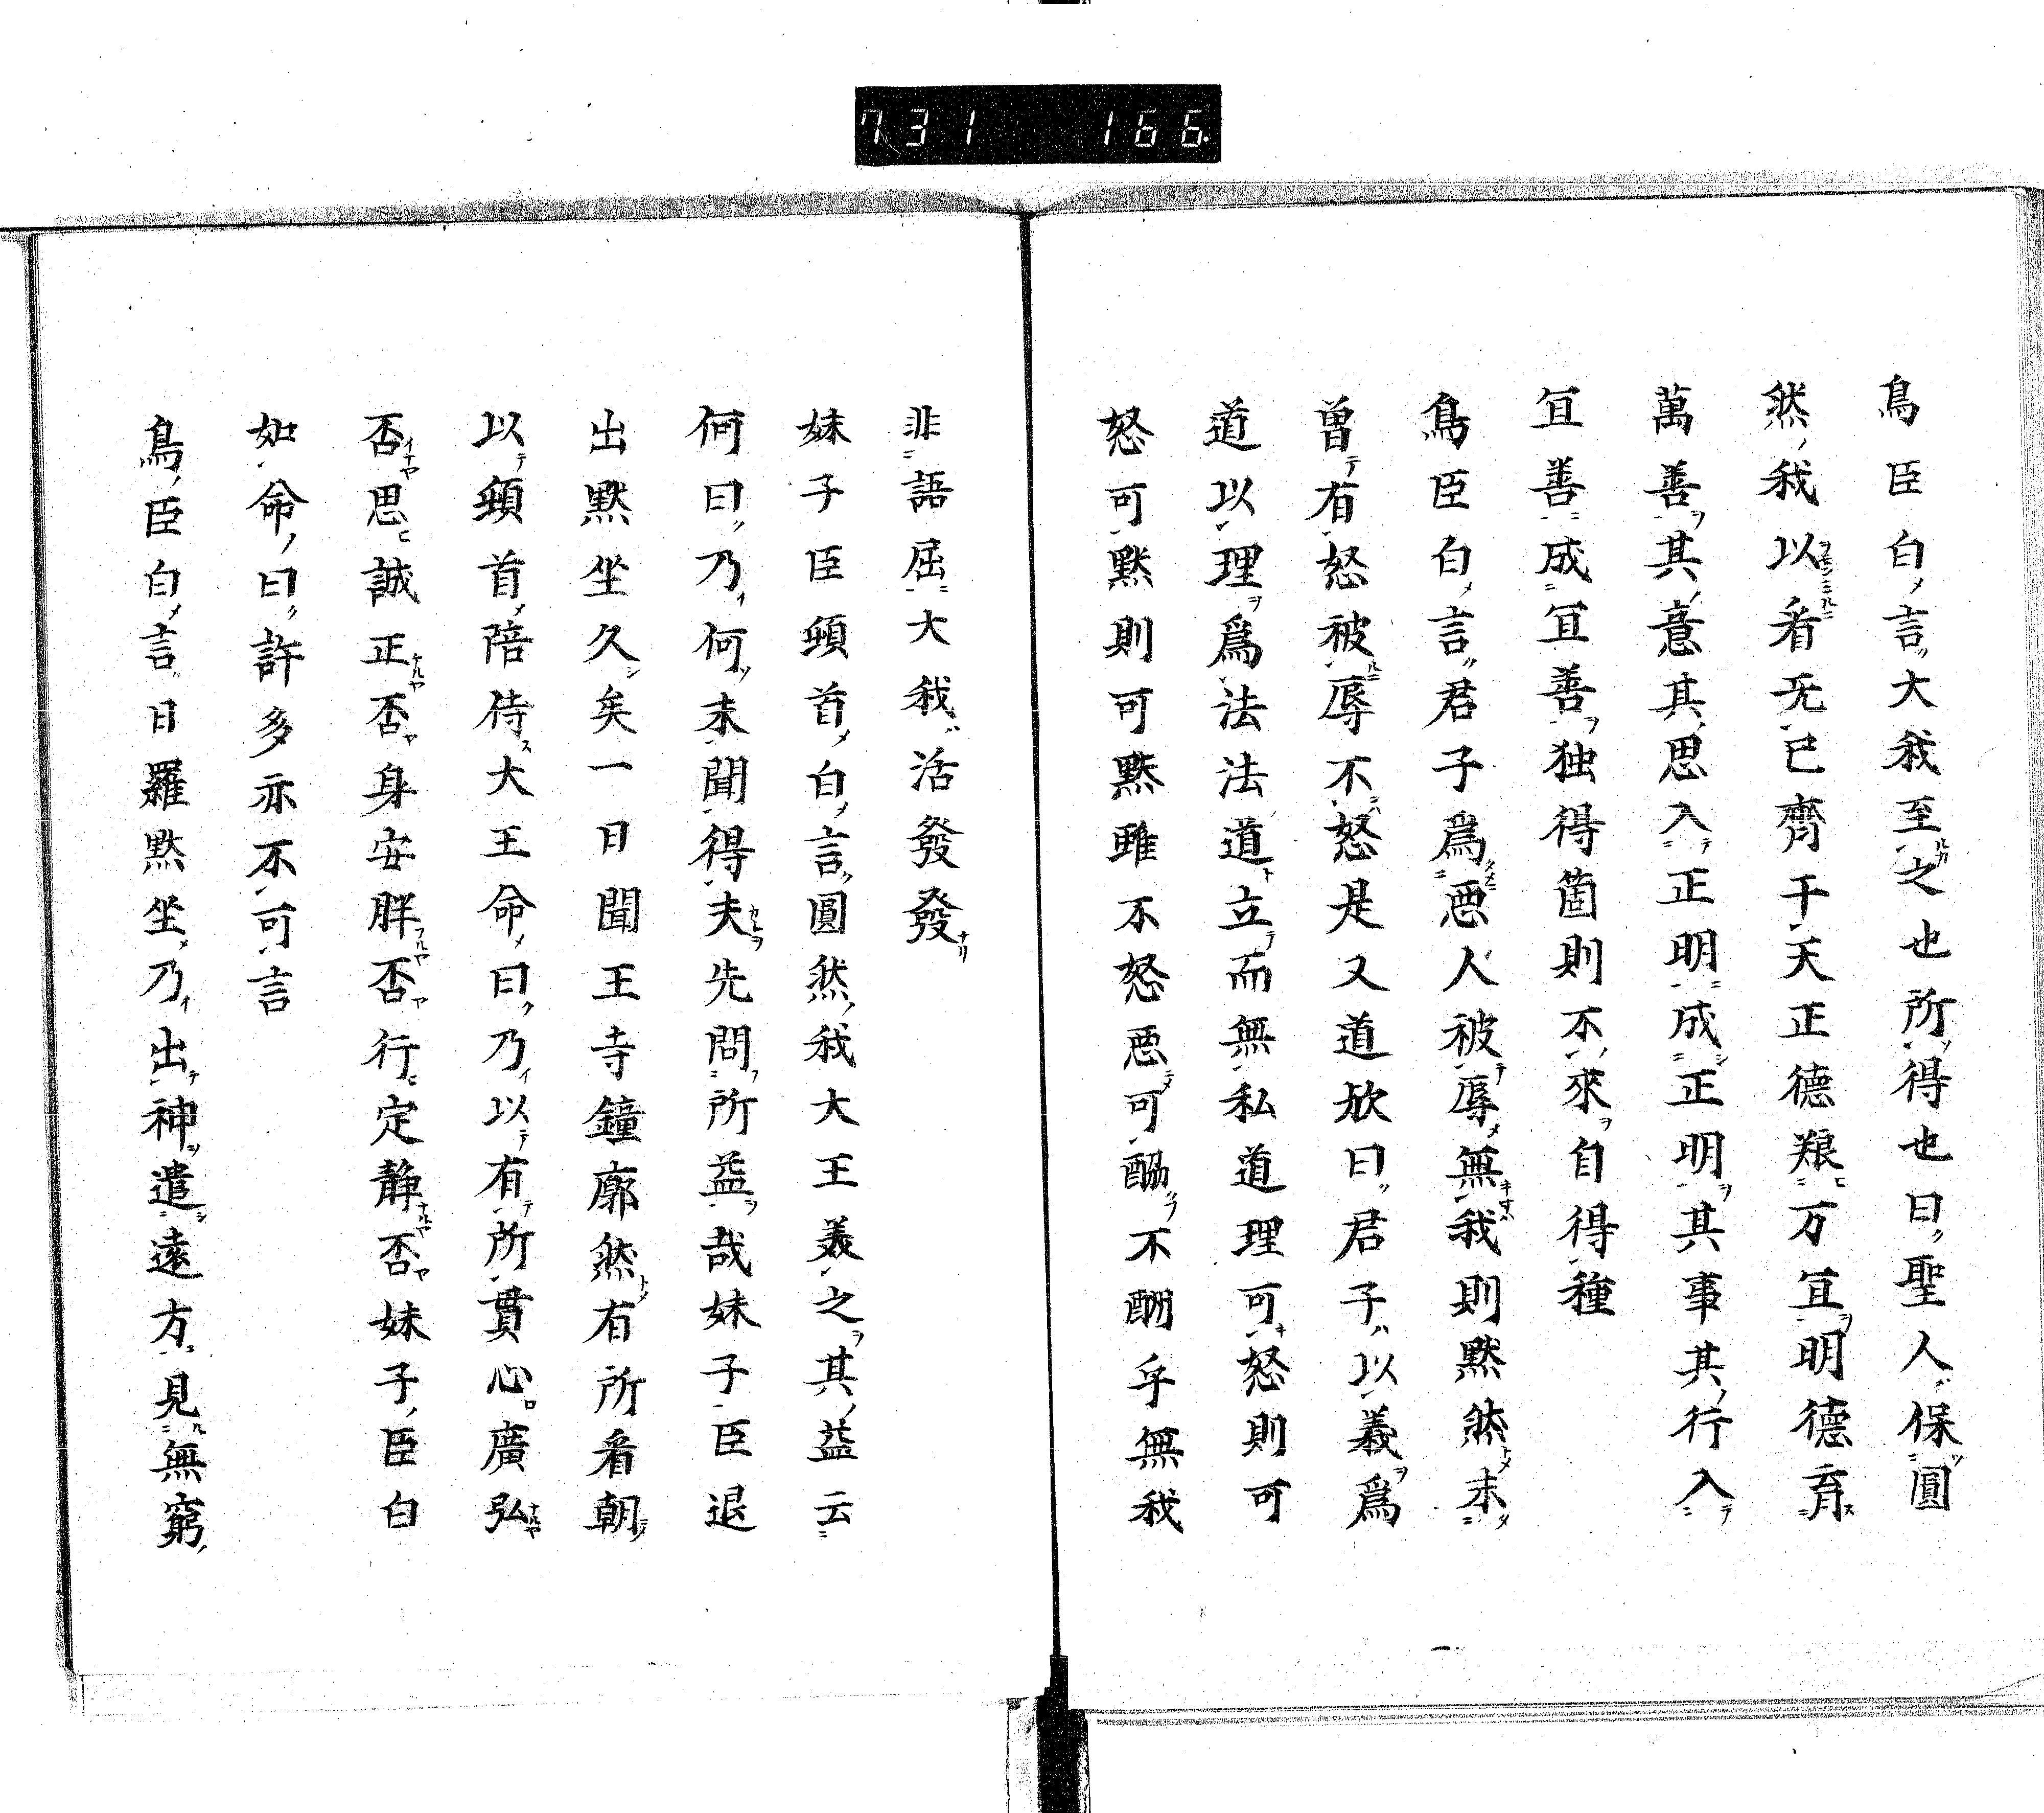 731 166.
鳥臣白言大我至之也所得也曰聖人保圓
然我以看无已齊于天正德粮万宜明德育
萬善其意其思入正明成正明其事其行入
宜善成宜善独得箇則不來自得種
鳥臣白言君子為惡人被辱無我則黙然未
曽有怒被辱不怒是又道欣曰君子以義為
道以理為法法道立而無私道理可怒則可
怒可黙則可黙雖不怒惡可酬不酬乎無我
非語屈大我活發發
妹子臣頓首白言圓然我大王美之其益云
何曰乃何未聞得夫先問所益哉妹子臣退
出黙坐久矣一日聞王寺鐘廓然有所看朝
以頓首陪侍大王命曰乃以有所貫心廣弘
否思誠正否身安胖否行定靜否妹子臣白
如命曰許多亦不可言
鳥臣白言日羅黙坐乃出神遣遠方見無窮